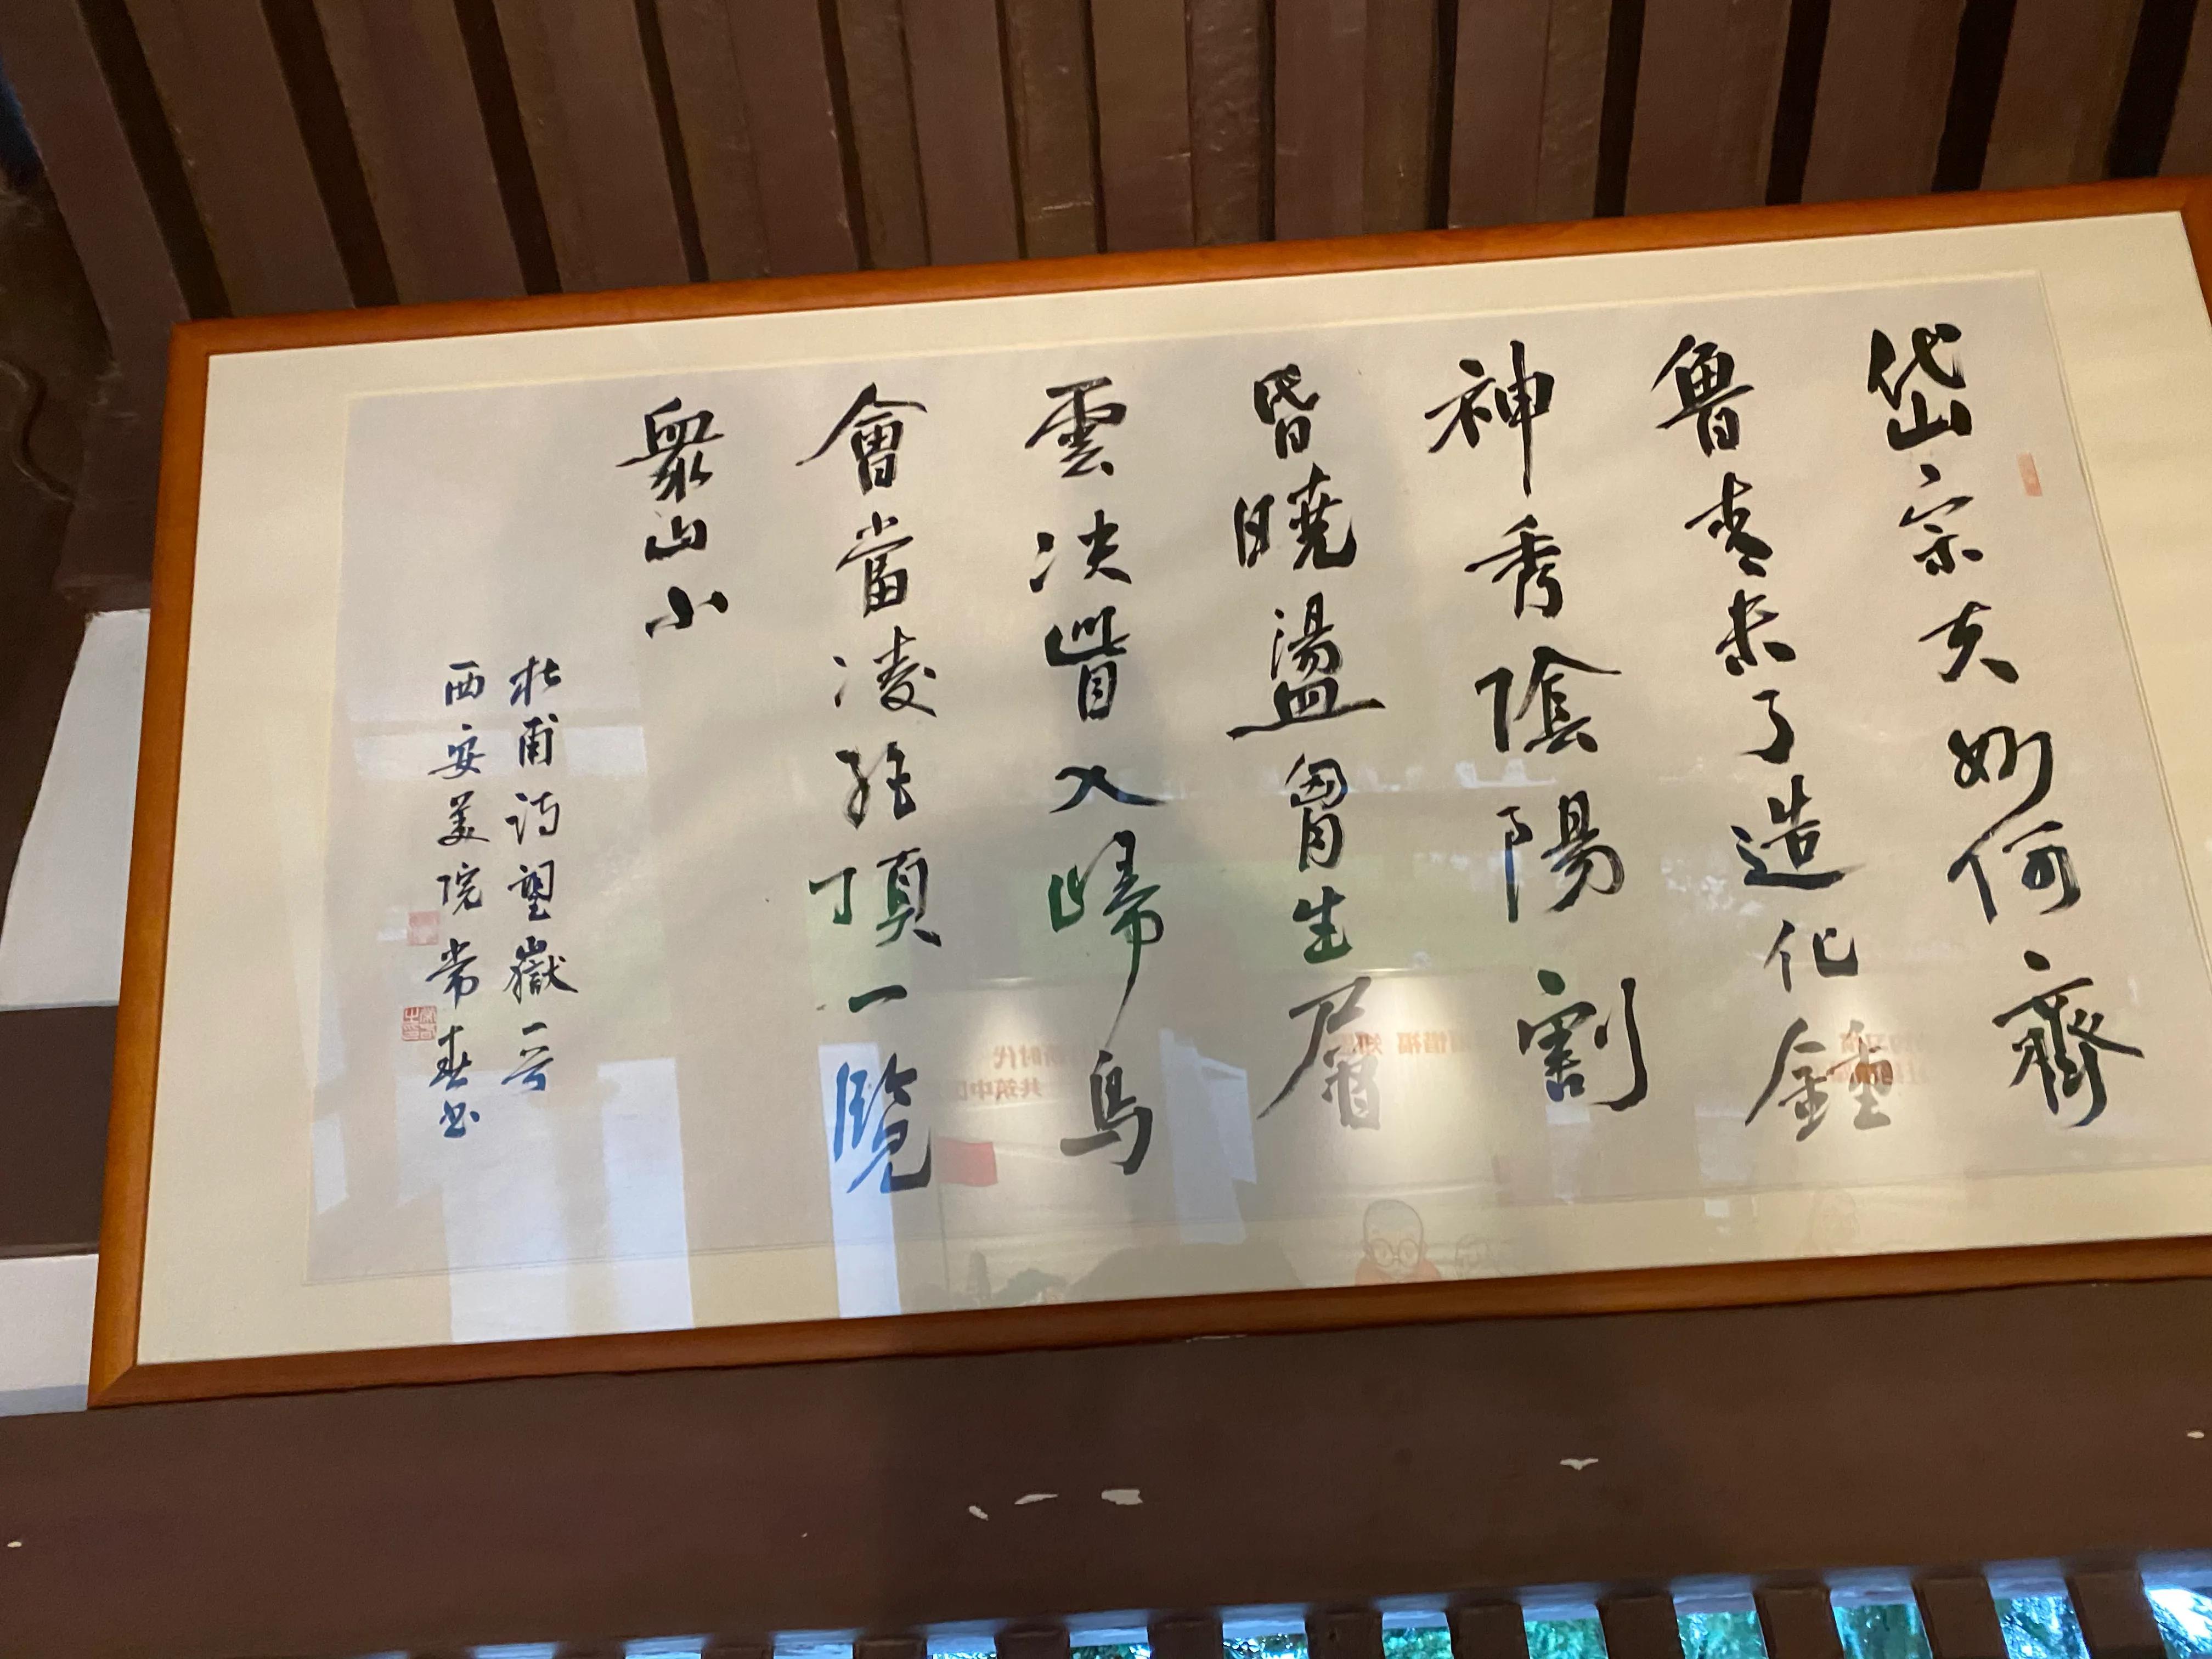 岱宗夫如何齊
魯青未了造化鍾
神秀陰陽割
昏曉盪胷生層
雲決眥入歸鳥
會當凌絶頂一覽
衆山小
杜甫詩望嶽一首
西安美院常春書